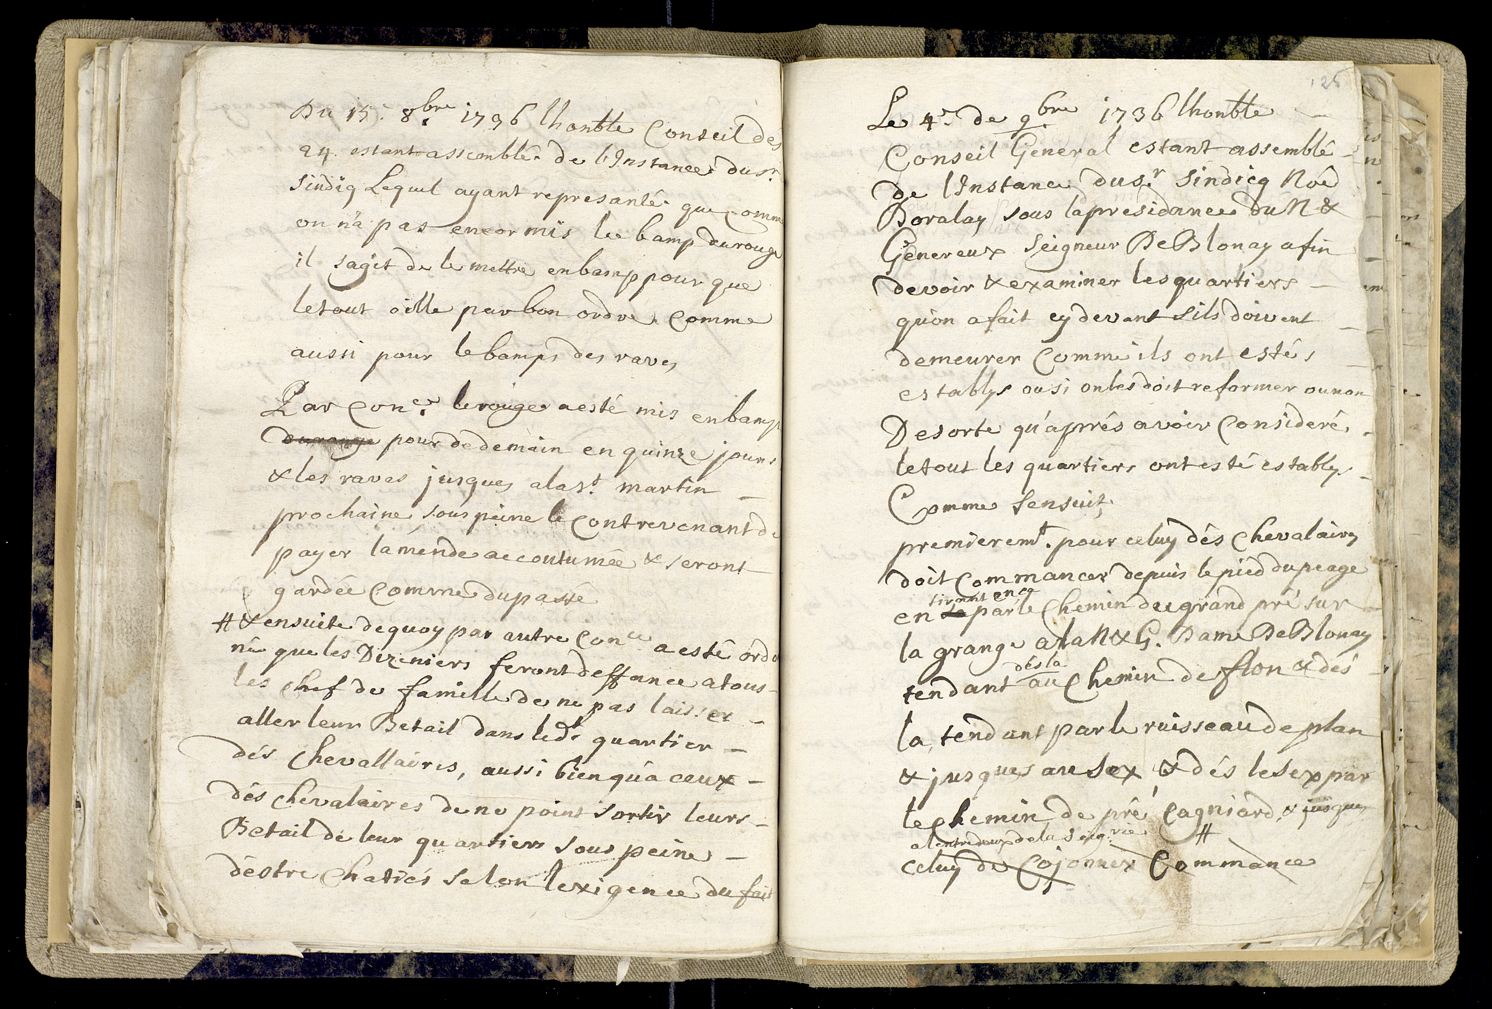 Du 15. 8.bre 1736 lhonble Conseil des
24. estant assemblé de l'Instance du Sr.
Sindiq Lequel ayant representé que comme
on n'a pas encor mis le bamp du rouge
il s'agit de le mettre en bamp pour que
le tout aille par bon ordre comme
aussi pour le bamp des raves
Par Con.ce le rouge a esté mis en bamp
pour de demain en quinze jours
& les raves jusques a la St. martin
prochaine sous peine le Contrevenant de
payer lamende accoutumée & seront
gardée Comme du passé
# & ensuite de quoy par autre Con.ce a esté ordo
né que les Dizeniers feront deffance a tous
les chef de famille de ne pas laisser
aller leur Betail dans led.t quartier
dés Chevallaires, aussi bien qu'a ceux
dés chevalaires de ne point sortir leurs
Betail de leur quartiers sous peine
déstre Chatiés selon lexigence du fait
125
Le 4.e de 9.bre 1736 lhonble
Conseil General estant assemblé
de l'Instance du Sr. Sindicq Noé
Boralay sous la presidance du N &
Genereux Seigneur De Blonay afin
de voir & examiner les quartiers
qu'on a fait cy devant sils doivent
demeurer Comme ils ont estés
establys ou si on les doit reformer ou non
De sorte qu'aprés avoir Consideré
le tout les quartiers ont esté establys
Comme sensuit,
premierem.t pour celuy dés chevalaires
doit Commancer depuis le pied du peage
tirant en ça
en La par le Chemin du grand pré sur
la grange a la N & G. Dame De Blonay
dés la
tendant au Chemin de flon & dés
la, tendant par le ruisseau de plan
& jusques au Sex & dés le Sex par
le chemin de pré Cagniard & jusques
a lentredeux de la Seig.rie #
celuy de Cojonnex Commance